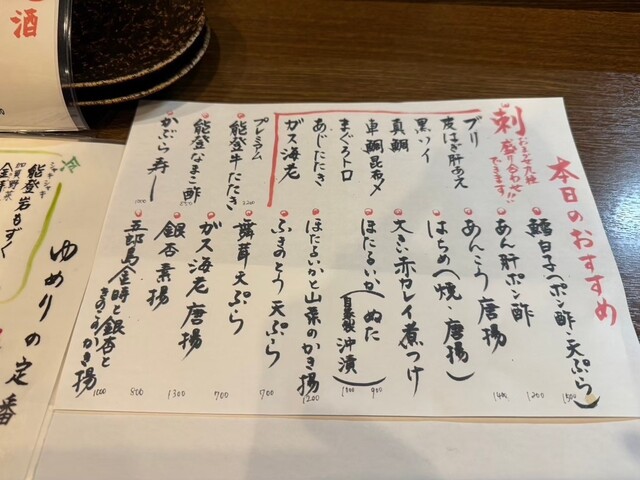 本日のおすすめ
刺
おまかせ九種
盛り合わせ!!
できます!
ブリ
皮はぎ肝あえ
黒ソイ
真鯛
車鯛昆布〆
まぐろトロ
あじたたき
ガス海老
プレミアム
能登牛たたき
能登なまこ酢
かぶら寿し
鱈白子(ポン酢・天ぷら) 1500
あん肝ポン酢 1200
あんこう唐揚 1400
はちめ(焼・唐揚)
大きい赤カレイ煮つけ
ほたるいか(ぬた 900
自家製沖漬) 1000
ほたるいかと山菜のかき揚 1200
ふきのとう天ぷら 700
舞茸天ぷら 700
ガス海老唐揚 1300
銀杏素揚 800
五郎島金時と銀杏と
きのこかき揚 1000
ゆめりの定番
能登岩もずく
シャキシャキ
酒